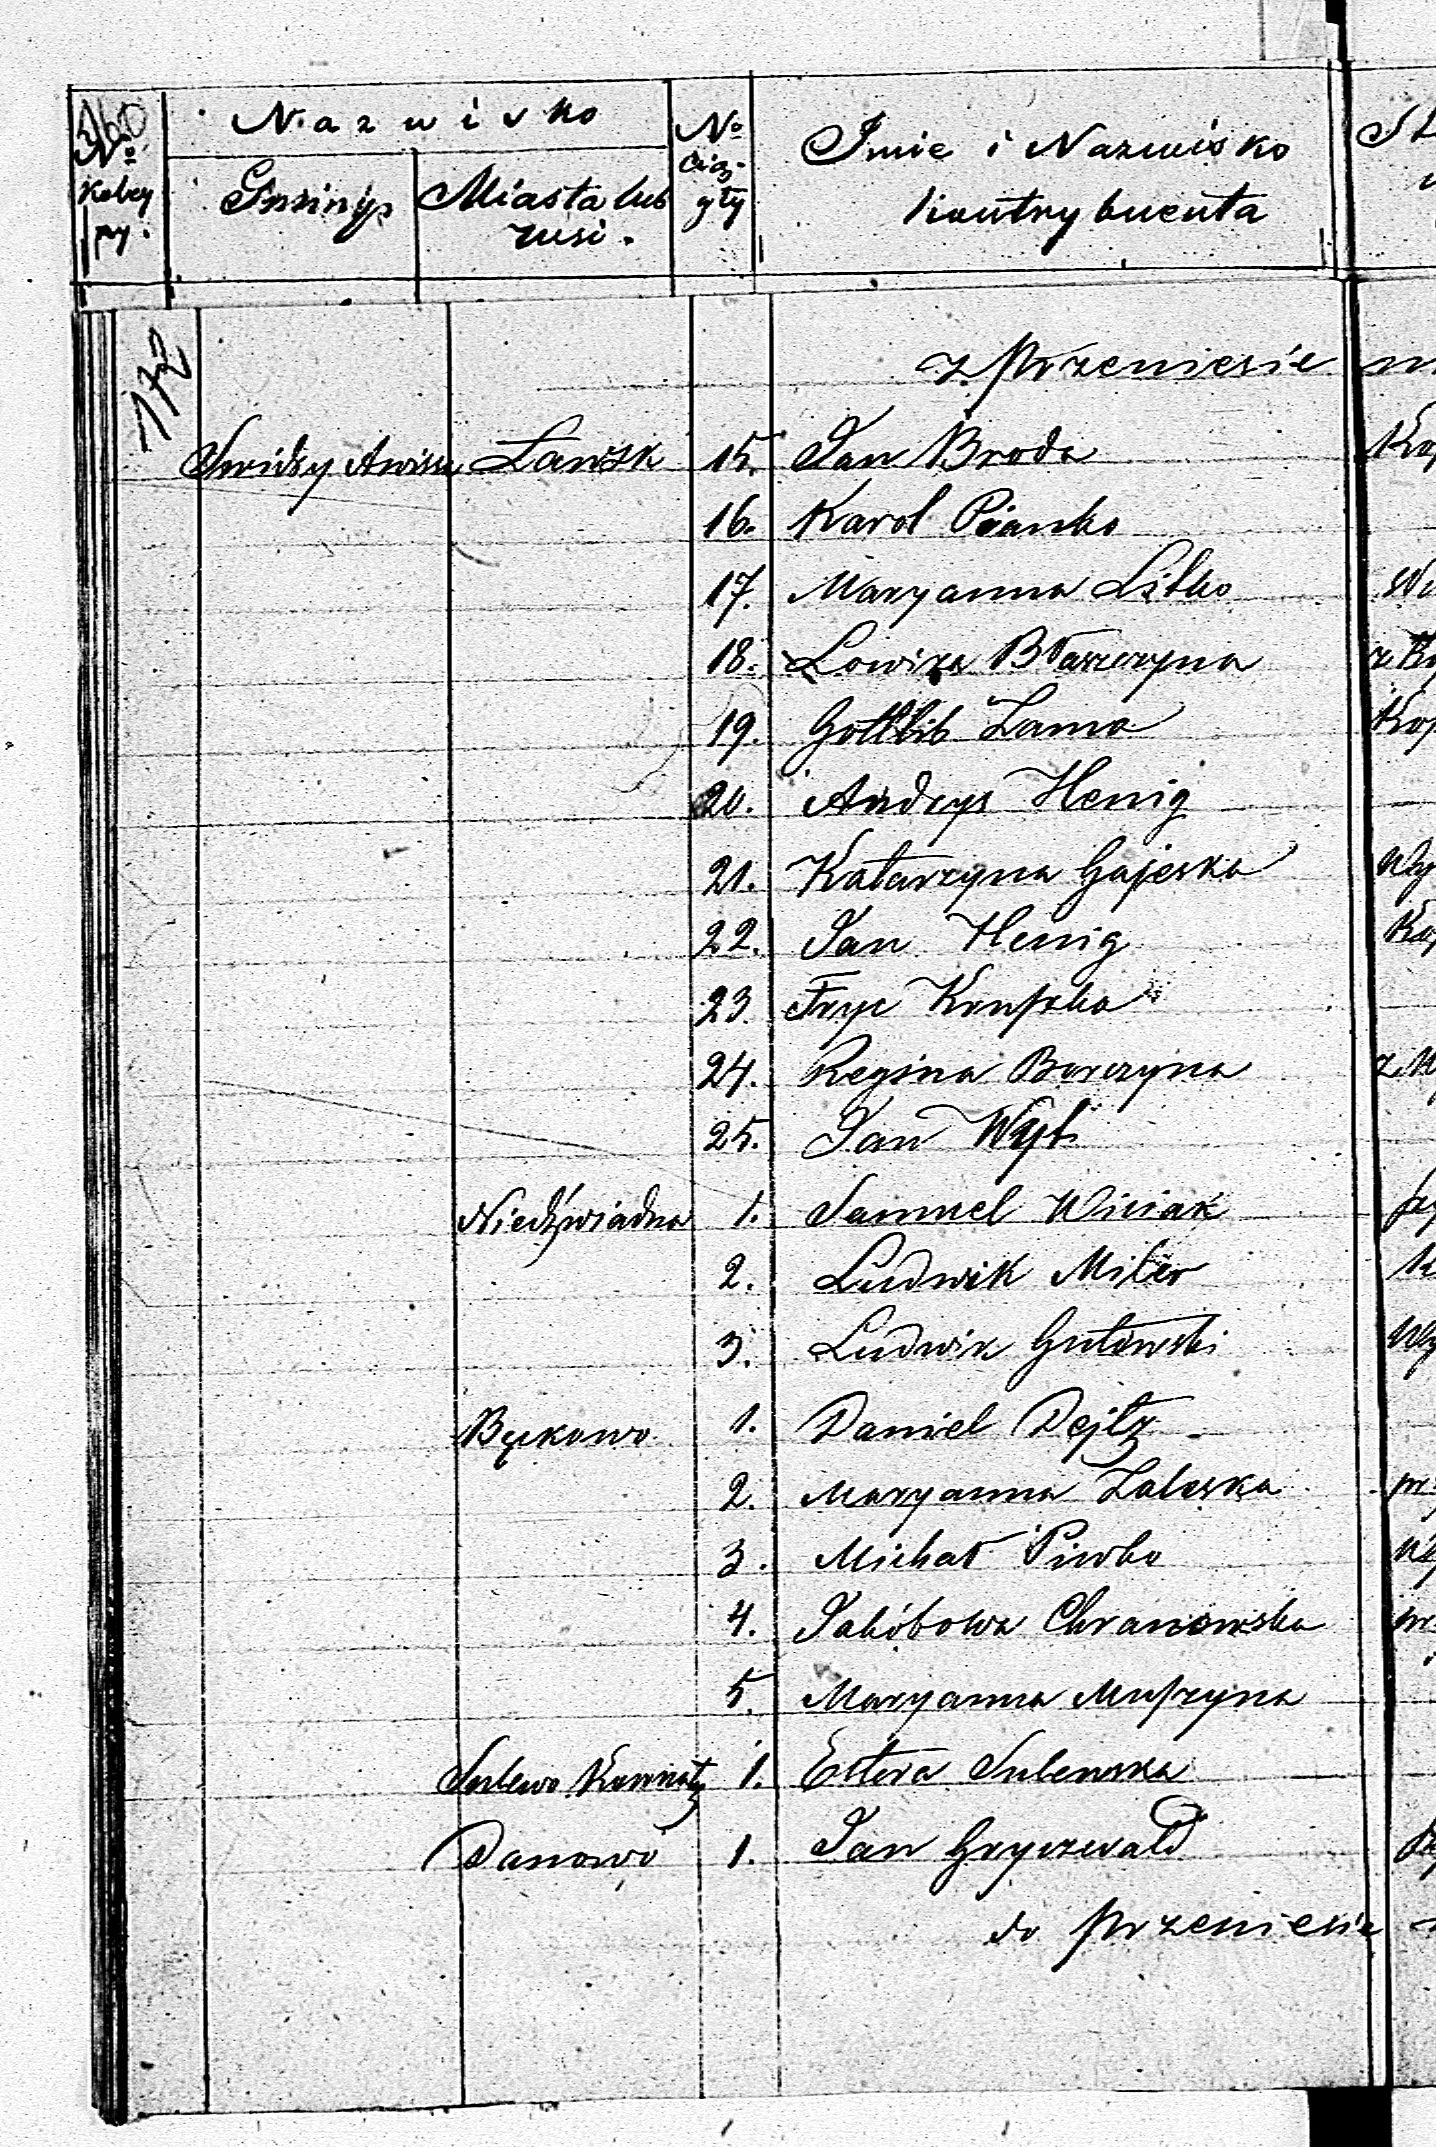 360
N a z w i s k o
No
No
Imie i Nazwisko
Kolej
ny.
Gminy
Miasta lub
wsi.
Ciąg-
gły
kontrybuenta
172
z przeniesie
Ławsk 15. Jan Broda
16. Karol Pianko
17. Maryanna Litko
18. Lowiza Błaszczyna
19. Gottlib Lama
20. Andrys Henig
21. Katarzyna Gajeska
22. Jan Henig
23. Fryc Krupska
24. Regina Borczyna
25. Jan Wyt
Niedźwiadna 1. Samuel Wiciak
2. Ludwik Miler
3. Ludwik Gutowski
Bęknowo 1. Daniel Dejtz
2. Maryanna Zaleska
3. Michał Piwko
4. Jakóbowa Chranowska
5. Maryanna Muszyna
Sulewo Kownaty 1. Estera Sulewska
Danowo 1. Jan Gryczwald
do przeniesie